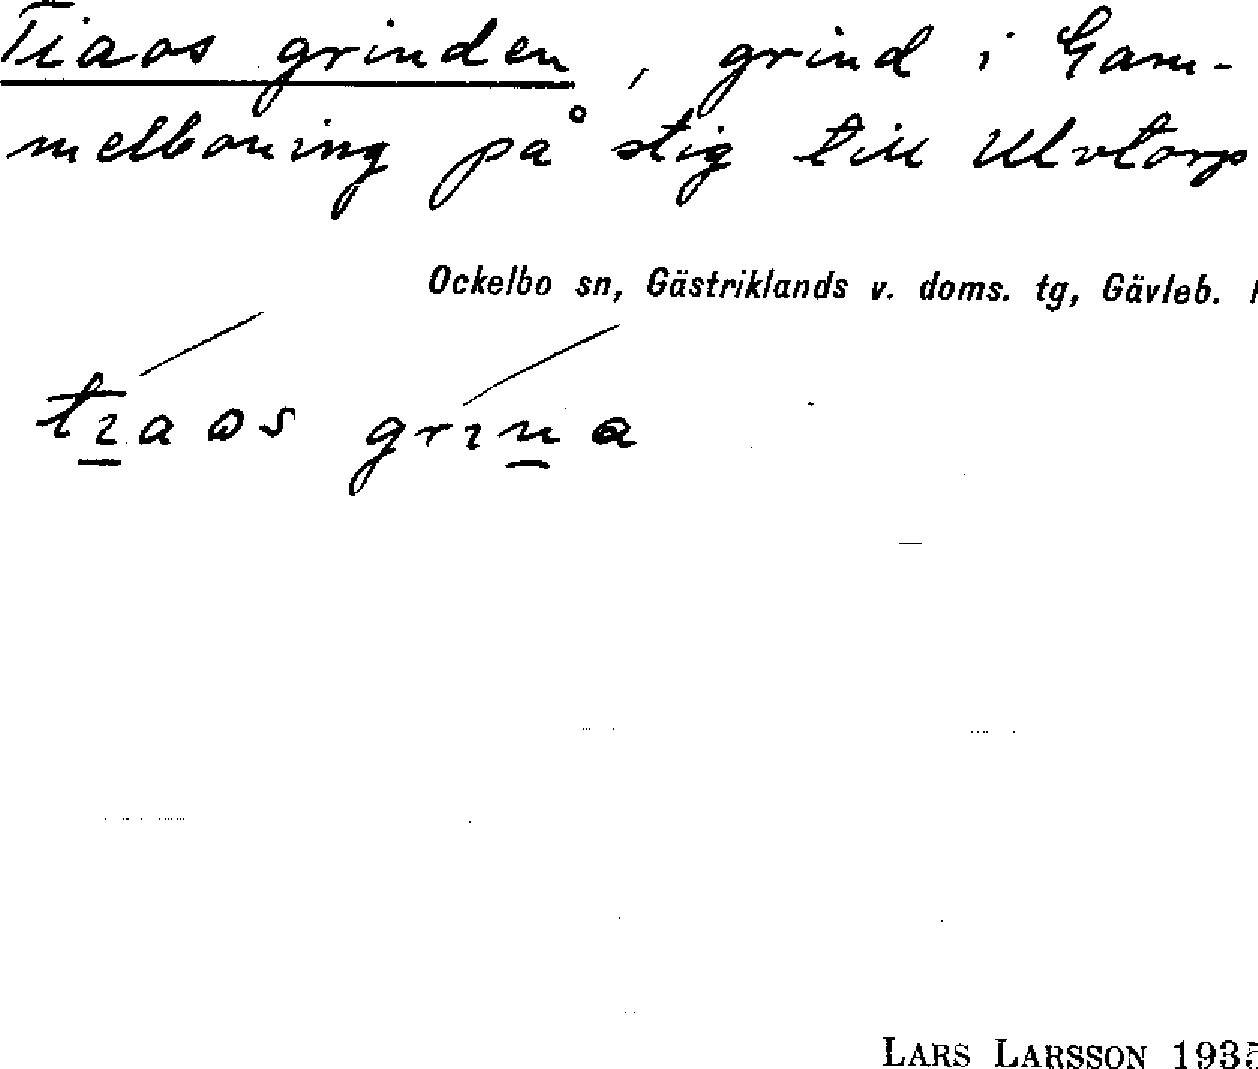 Tiaos grinden, grind i Gam-
melboning på stig till Ulvtorp
Ockelbo sn, Gästriklands v. doms. tg, Gävleb.
tɪaos grɪna
LARS LARSSON 1935